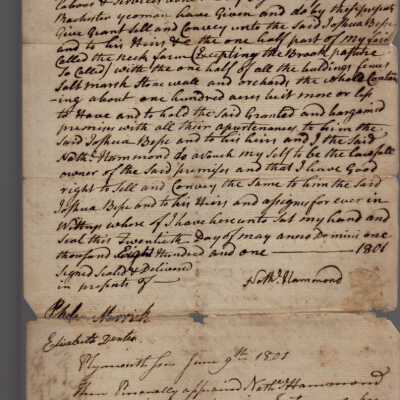 Labour &
Rochester yeoman have Given and do by these presents
Give Grant Sell and Convey unto the Said Joshua Bese
and to his Heirs & the one half part of my
Called the neck farm (Excepting the Brook pasture
So Called) with the one half of all the buildings fences
Salt marsh Stone wall and orchards the whole Contain
ing about one hundred acres be it more or less
To Have and to hold the Said Granted and bargaind
premises with all their apurtenances to him the
Said Joshua Bese and to his heirs and I the Said
Nathl. Hammond do avouch my Self to be the lawfull
owner of the Said premises and that I have Good
right to Sell and Convey the Same to him the Said
Joshua Bese and to his Heirs and assignes for ever in
Wittnes whereof I have hereunto Set my hand and
Seal this Twentieth Day of may anno Domini one
thousand Eight Hundred and one 1801
Signed Seald & Delivered
in presents of Nathl. Hammond
Elisabeth Dexter
Plymouth June 9th 1801
Then Personally appeared Nathl. Hammond